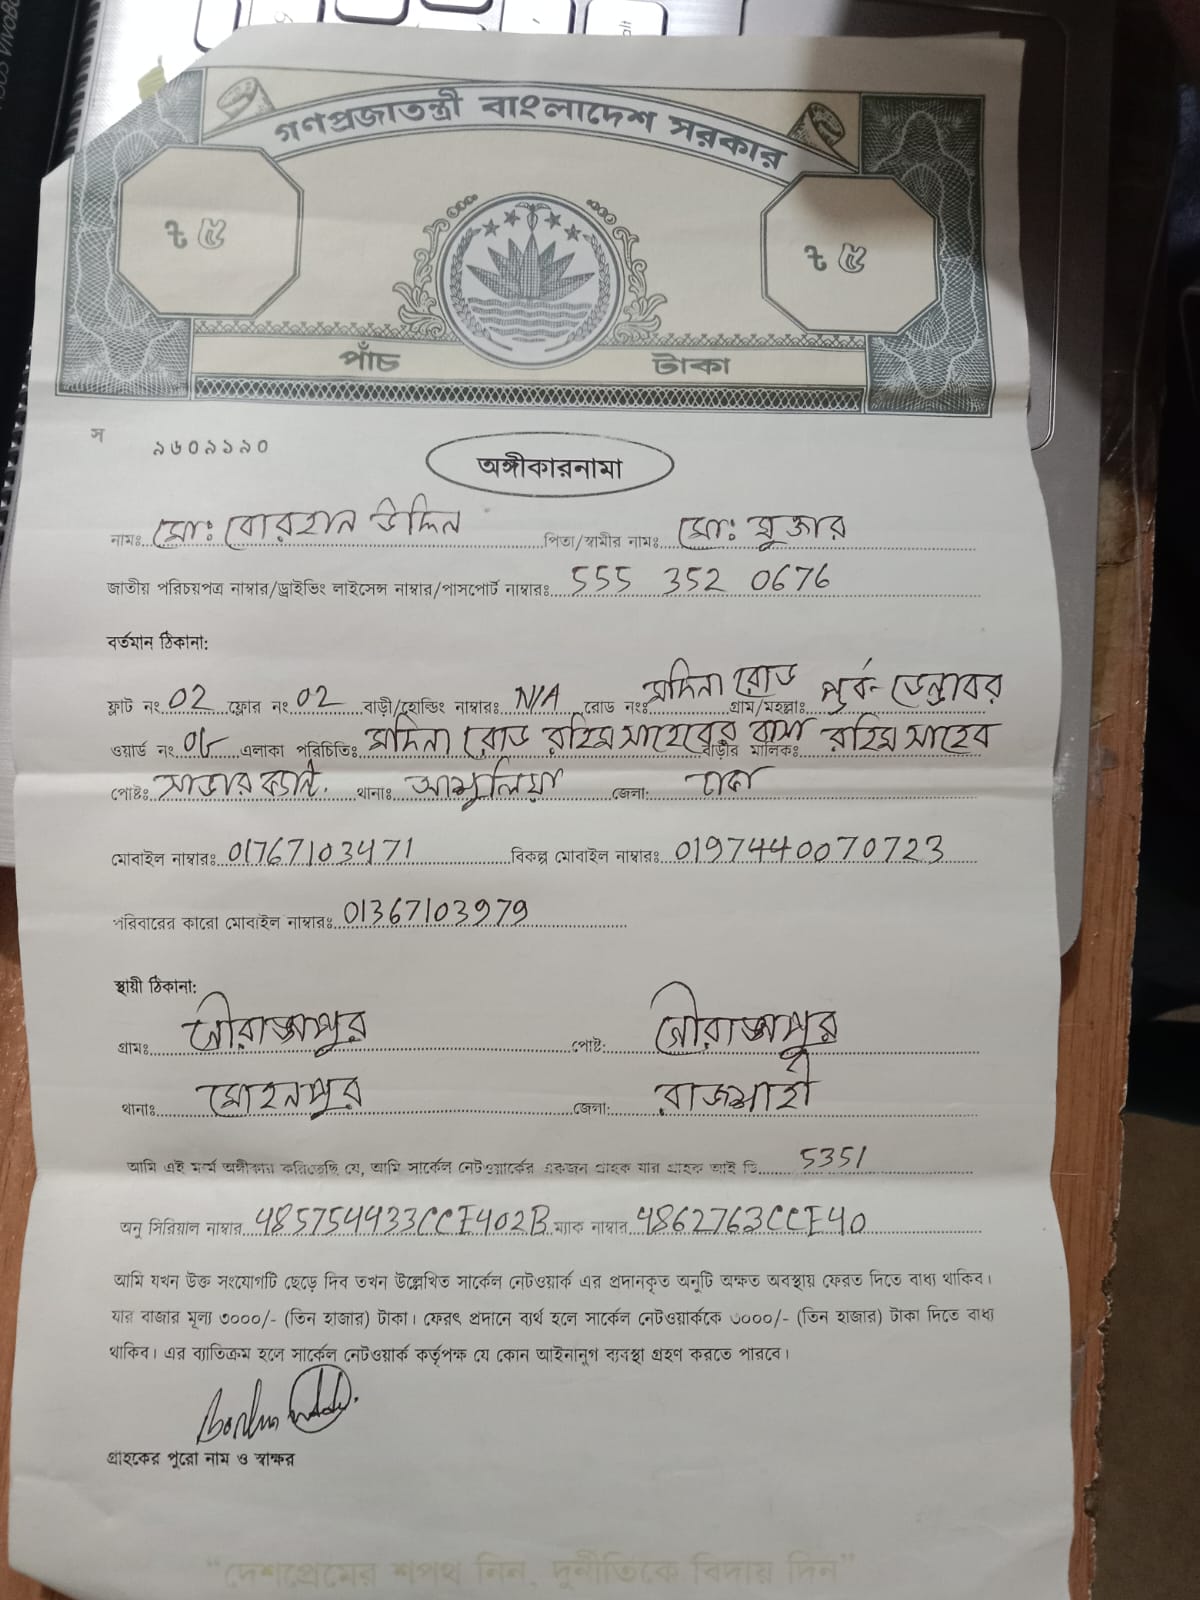 গণপ্রজাতন্ত্রী বাংলাদেশ সরকার
৳ ৫ ৳ ৫
পাঁচ টাকা
স ৯৬০৯১৯০
অঙ্গীকারনামা
নামঃ মোঃ বোরহান উদ্দিন পিতা/স্বামীর নামঃ মোঃ মুক্তার
জাতীয় পরিচয়পত্র নাম্বার/ড্রাইভিং লাইসেন্স নাম্বার/পাসপোর্ট নাম্বারঃ 555 352 0676
বর্তমান ঠিকানা:
ফ্লাট নং 02 ফ্লোর নং 02 বাড়ী/হোল্ডিং নাম্বারঃ N/A রোড নংঃ মদিনা রোড গ্রাম/মহল্লাঃ পূর্ব-ডেন্ডাবর
ওয়ার্ড নং এলাকা পরিচিতিঃ মদিনা রোড রহিম সাহেবের বাসা বাড়ীর মালিকঃ রহিম সাহেব
পোষ্টঃ সাভার ক্যান্ট. থানাঃ আশুলিয়া জেলা: ঢাকা
মোবাইল নাম্বারঃ 01767103471 বিকল্প মোবাইল নাম্বারঃ 0197440070723
পরিবারের কারো মোবাইল নাম্বারঃ 01367103979
স্থায়ী ঠিকানা:
গ্রামঃ পোষ্ট:
থানাঃ মোহনপুর জেলা: রাজশাহী
আমি এই মর্মে অঙ্গীকার করিতেছি যে, আমি সার্কেল নেটওয়ার্কের একজন গ্রাহক যার গ্রাহক আই ডি 5351
অনু সিরিয়াল নাম্বার 485754433CCE402B ম্যাক নাম্বার 4862763CCE40
আমি যখন উক্ত সংযোগটি ছেড়ে দিব তখন উল্লেখিত সার্কেল নেটওয়ার্ক এর প্রদানকৃত অনুটি অক্ষত অবস্থায় ফেরত দিতে বাধ্য থাকিব।
যার বাজার মূল্য ৩০০০/- (তিন হাজার) টাকা। ফেরৎ প্রদানে ব্যর্থ হলে সার্কেল নেটওয়ার্ককে ৩০০০/- (তিন হাজার) টাকা দিতে বাধ্য
থাকিব। এর ব্যতিক্রম হলে সার্কেল নেটওয়ার্ক কর্তৃপক্ষ যে কোন আইনানুগ ব্যবস্থা গ্রহণ করতে পারবে।
গ্রাহকের পুরো নাম ও স্বাক্ষর
“দেশপ্রেমের শপথ নিন, দুর্নীতিকে বিদায় দিন”